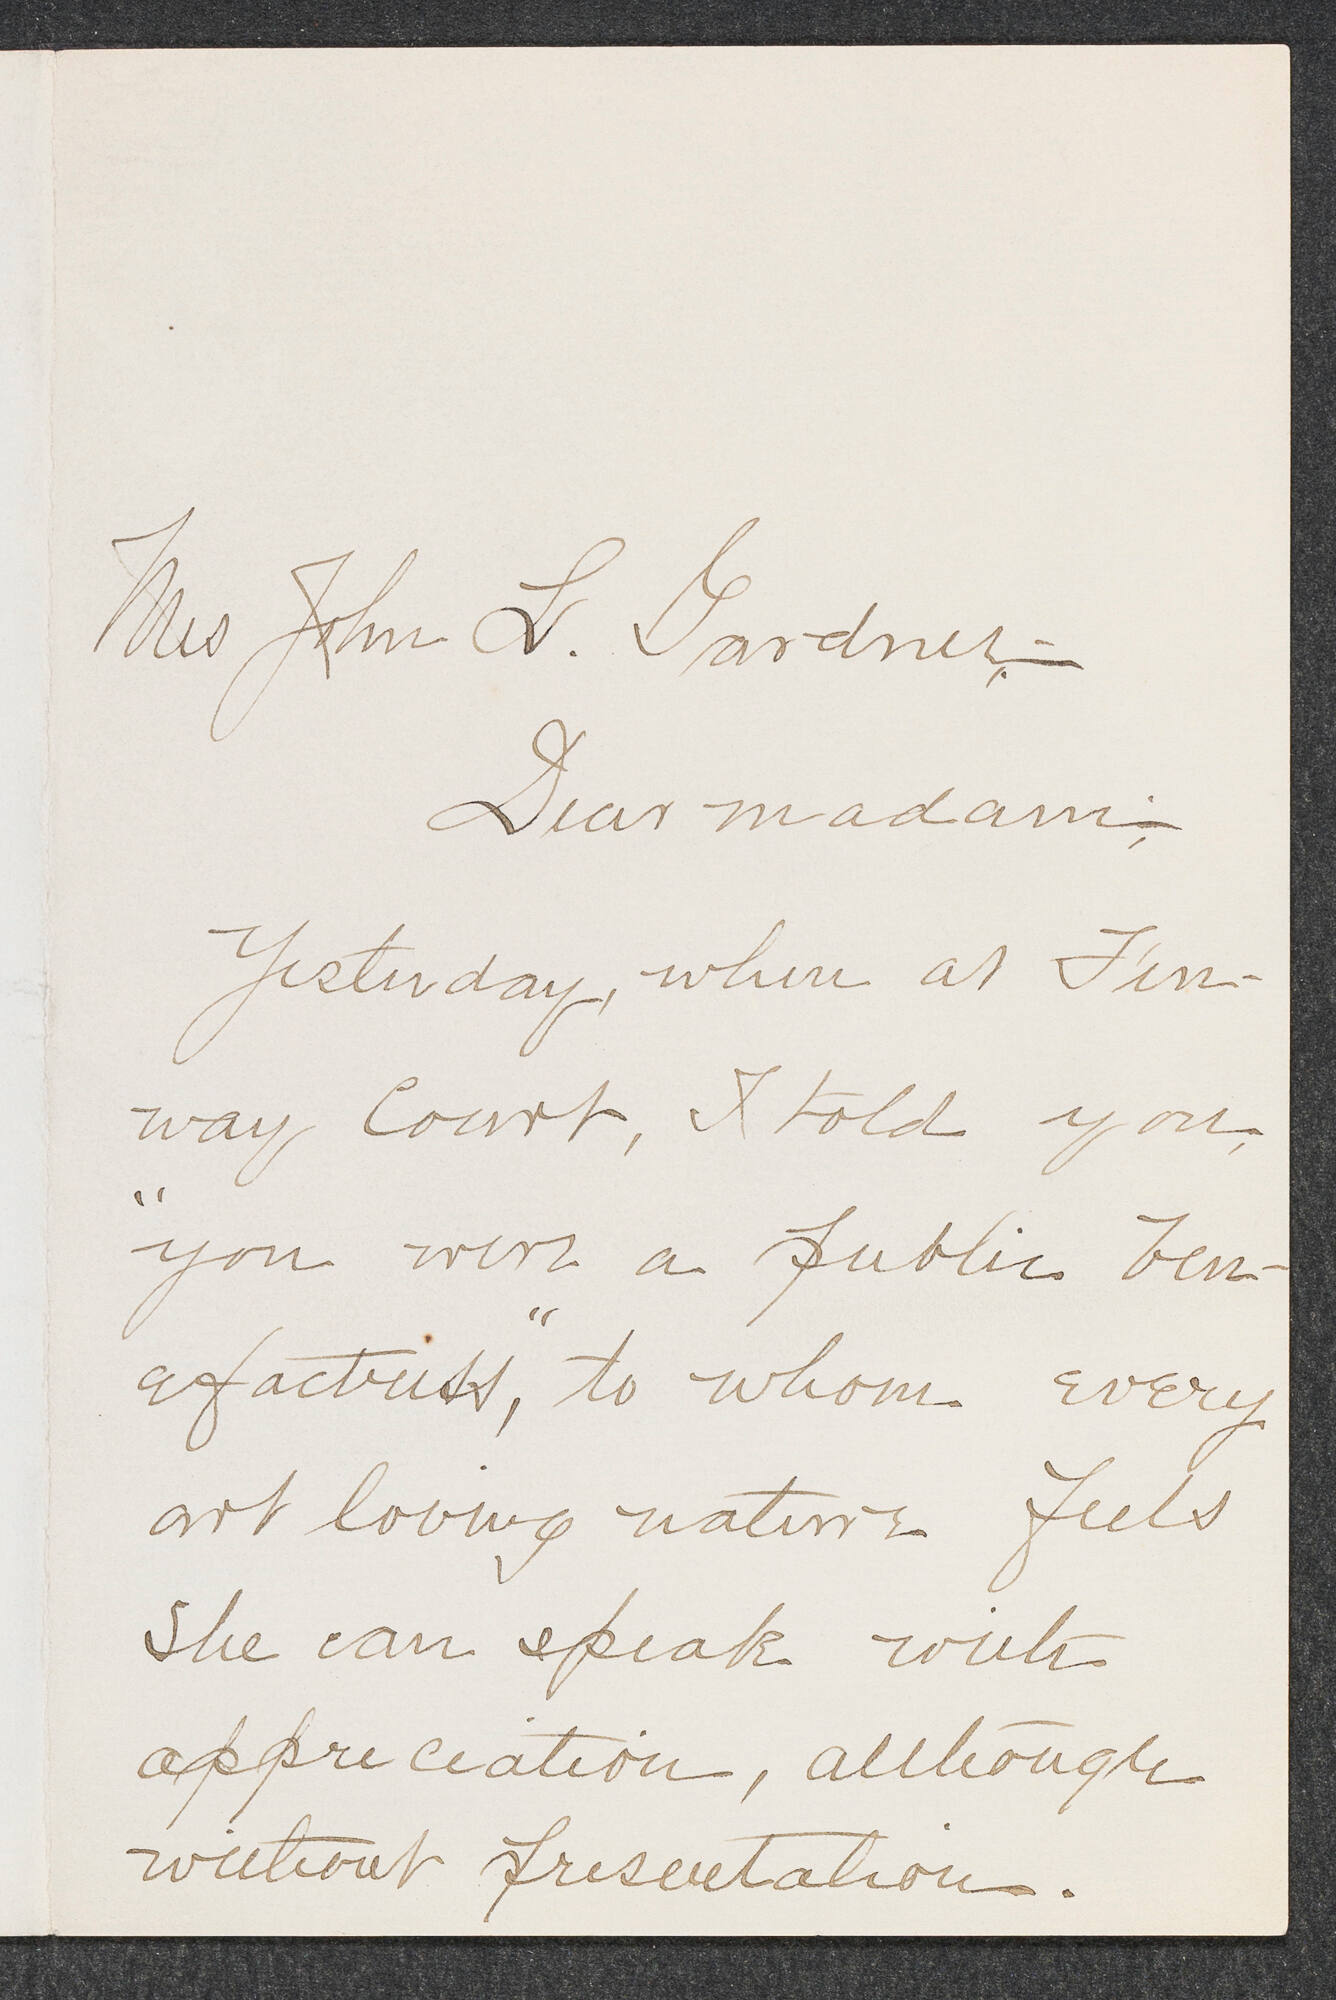 Mrs John L. Gardner,—
Dear madam;—
Yesterday, when at Fen-
way Court, I told you,
"you were a public ben-
efactress," to whom every
art loving nature feels
she can speak with
appreciation, although
without presentation.